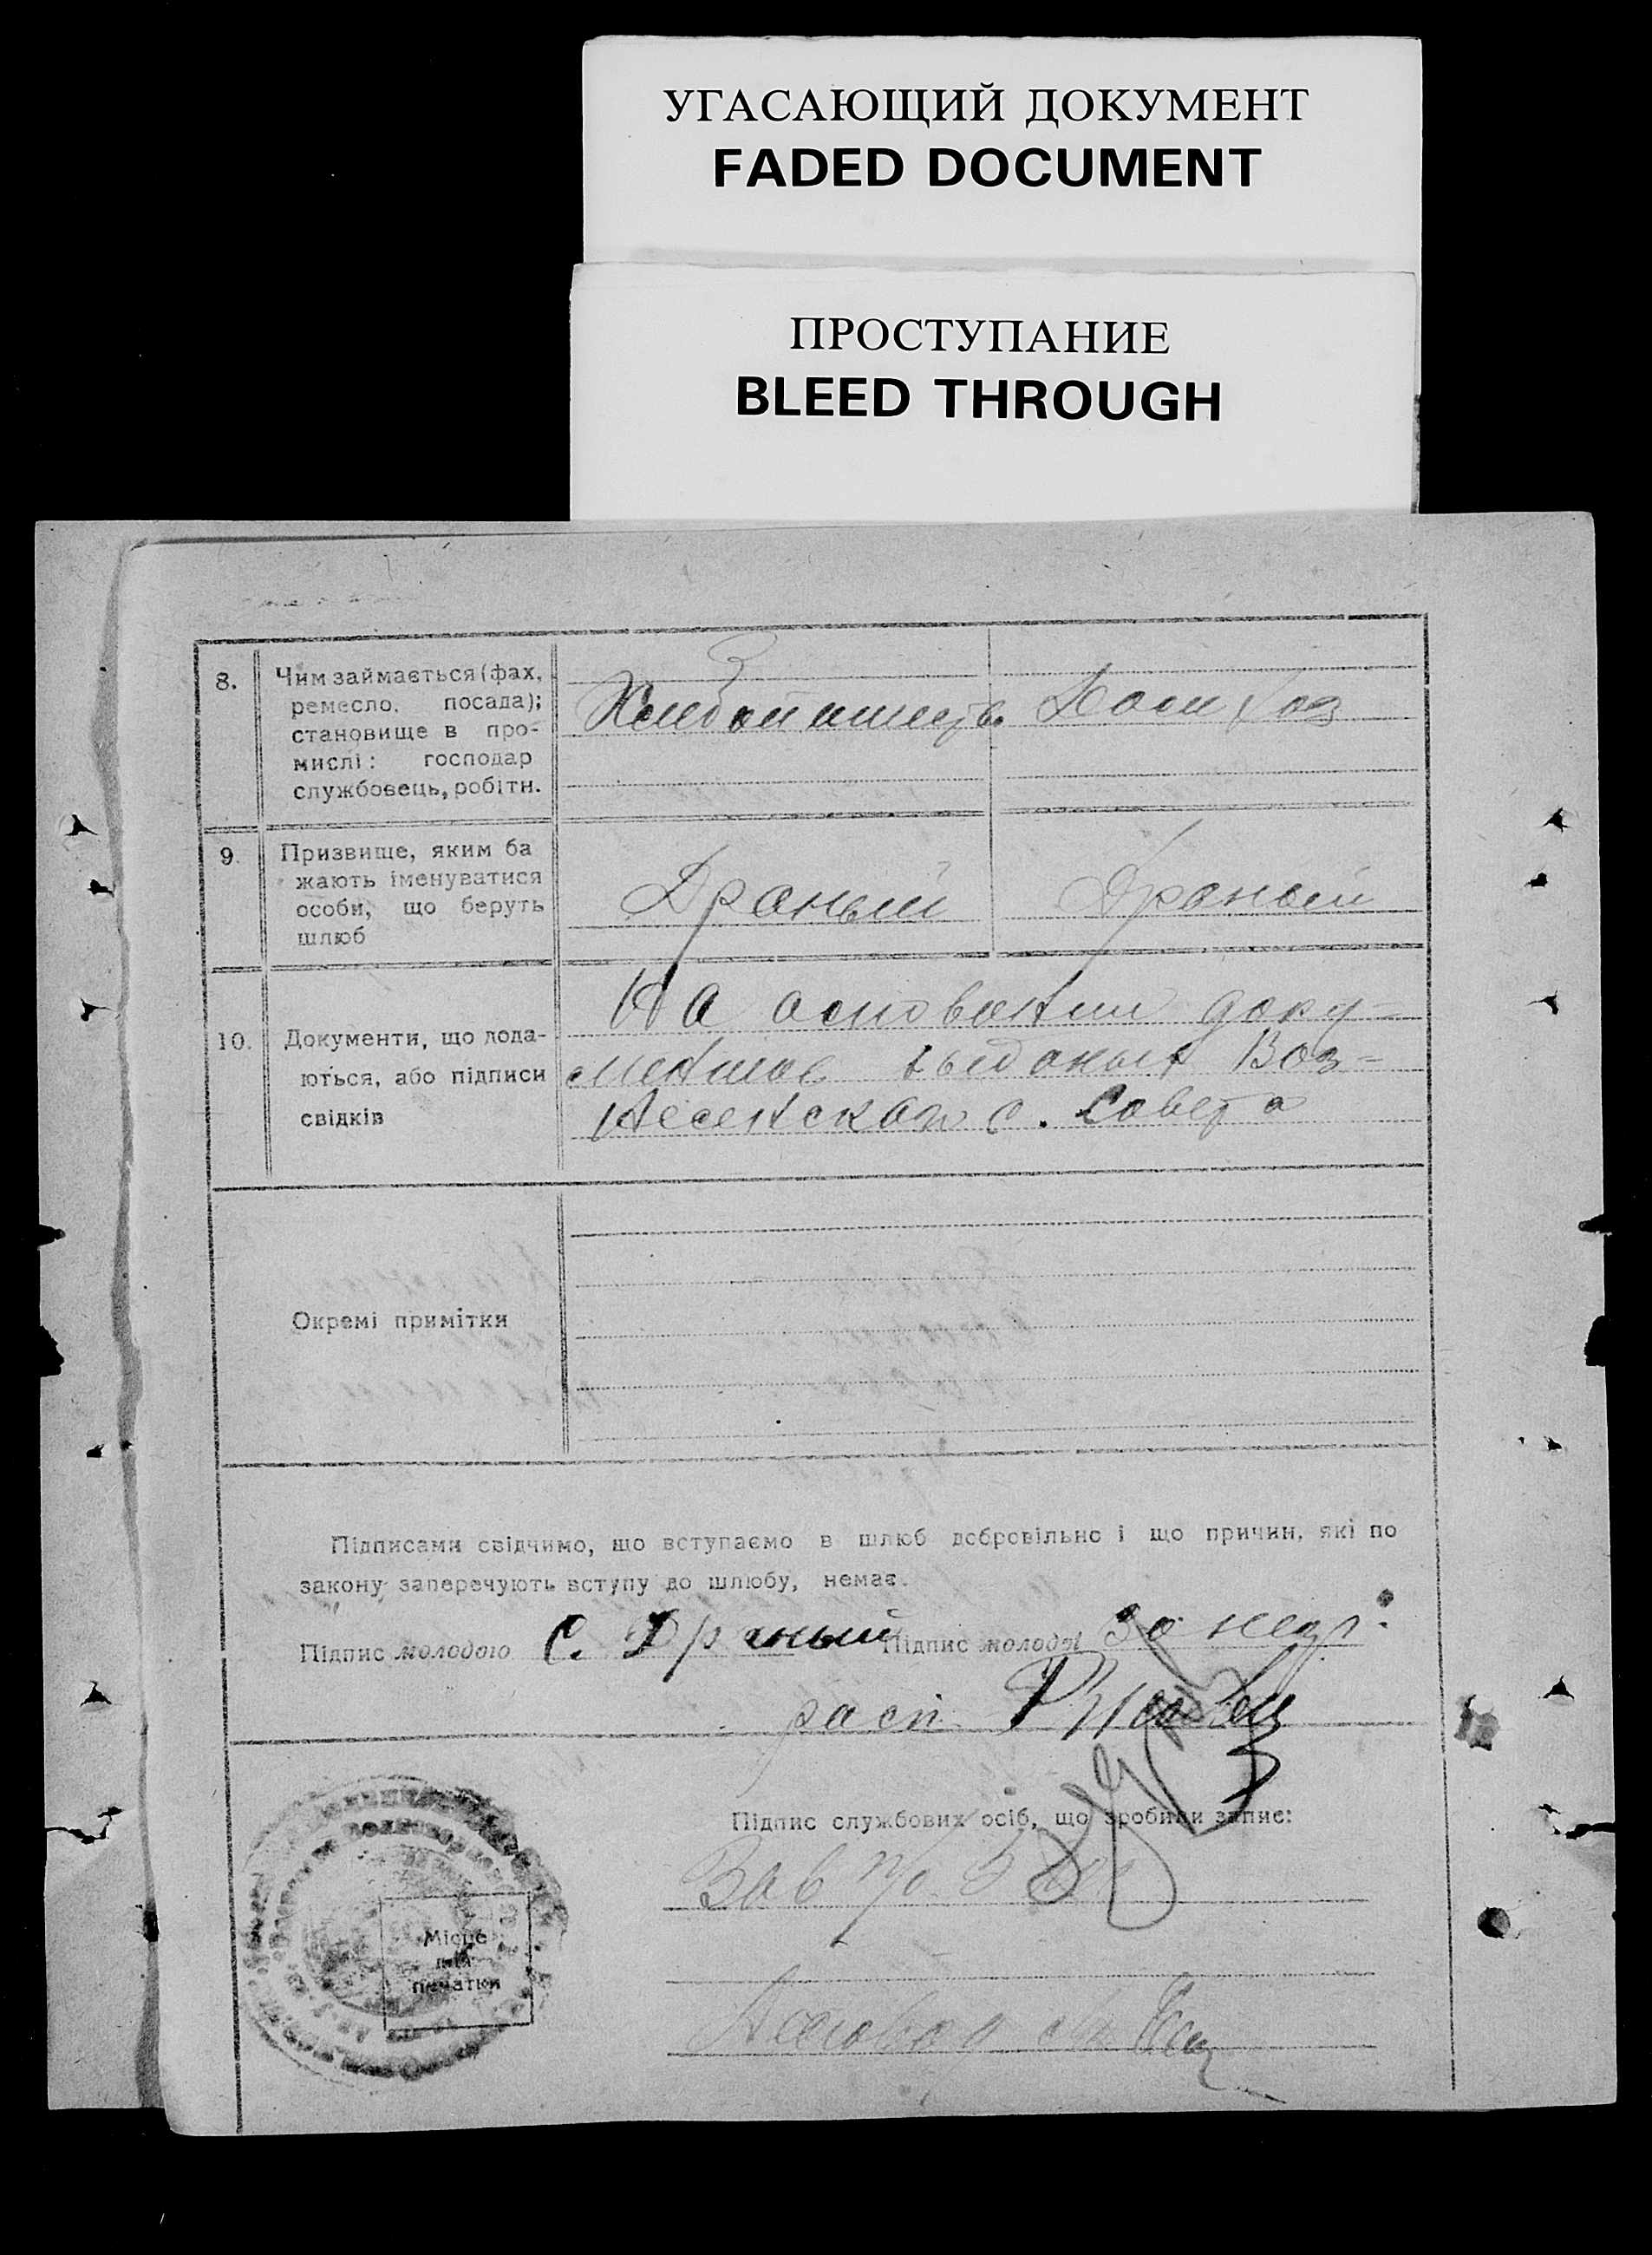 УГАСАЮЩИЙ ДОКУМЕНТ
FADED DOCUMENT
ПРОСТУПАНИЕ
BLEED THROUGH
8.
Чим займається (фах,
ремесло, посада);
становище в про-
мислі: господар
службовець, робітн.
Хлебопашество
Дом хоз
9.
Призвище, яким ба
жають іменуватися
особи, що беруть
шлюб
Драный
Драный
10.
Документи, що дода-
ються, або підписи
свідків
На основании доку-
ментов выданых Воз-
несенского с. Совета
Окремі примітки
Підписами свідчимо, що вступаємо в шлюб добровільно і що причин, які по
закону заперечують вступу до шлюбу, немає.
Підпис молодого С. Драный Підпис молодої За негр.
расп
Підпис службових осіб, що зробили запис:
Зав
Місце
для
печатки